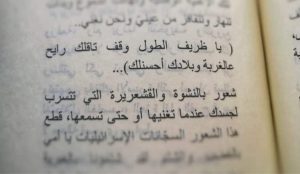 تنهار وتتقافز من عينيّ ونحن نغني..
( يا ظريف الطول وقف تاقلك رايح
عالغربة وبلادك أحسنلك)...
شعور بالنشوة والقشعريرة التي تتسرب
لجسدك عندما تغنيها أو حتى تسمعها، قطع
هذا الشعور السخانات الإسرائيليات يا أمي